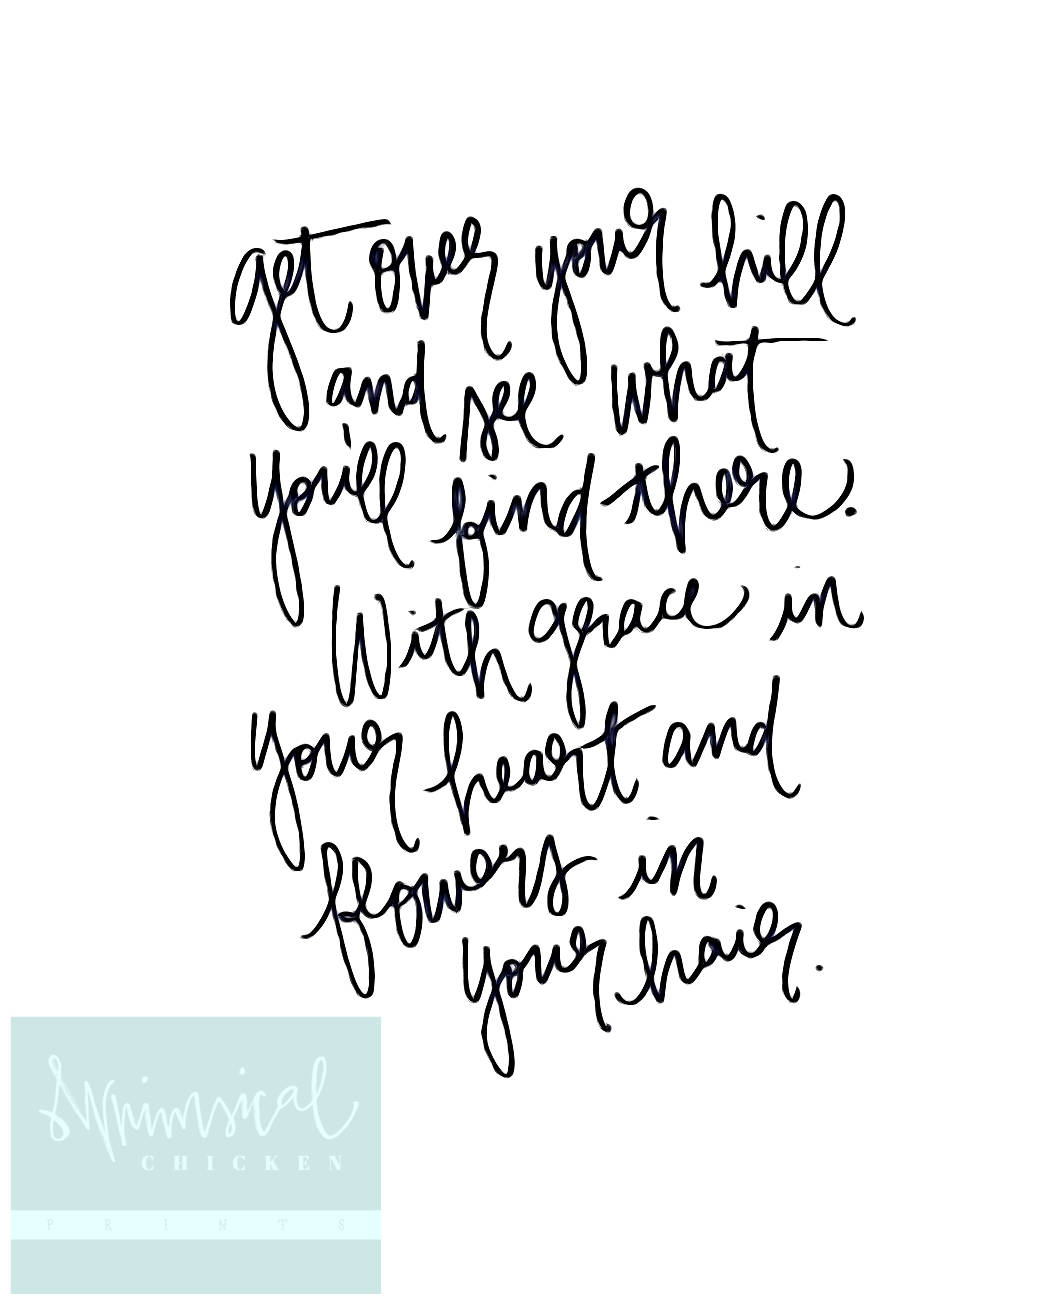 get over your hill
and see what
you'll find there.
With grace in
your heart and
flowers in
your hair.
Whimsical
CHICKEN
PRINTS